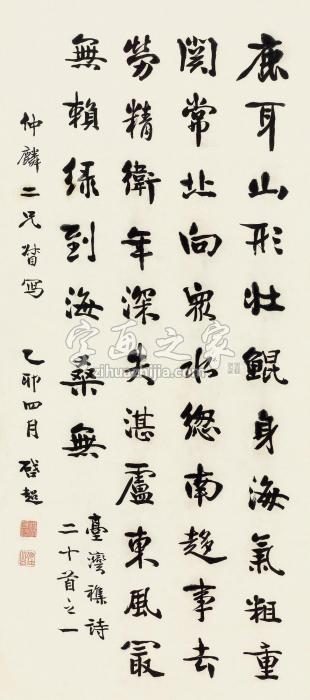 鹿耳山形壯鯤身海氣粗重
関常北向衆水緫南趨事去
勞精衛年深失湛盧東風冣
無賴緑到海桑無
臺灣雜詩
二十首之一
仲麟二兄督寫 乙卯四月 啓超
字画之家
zihuazhijia.com